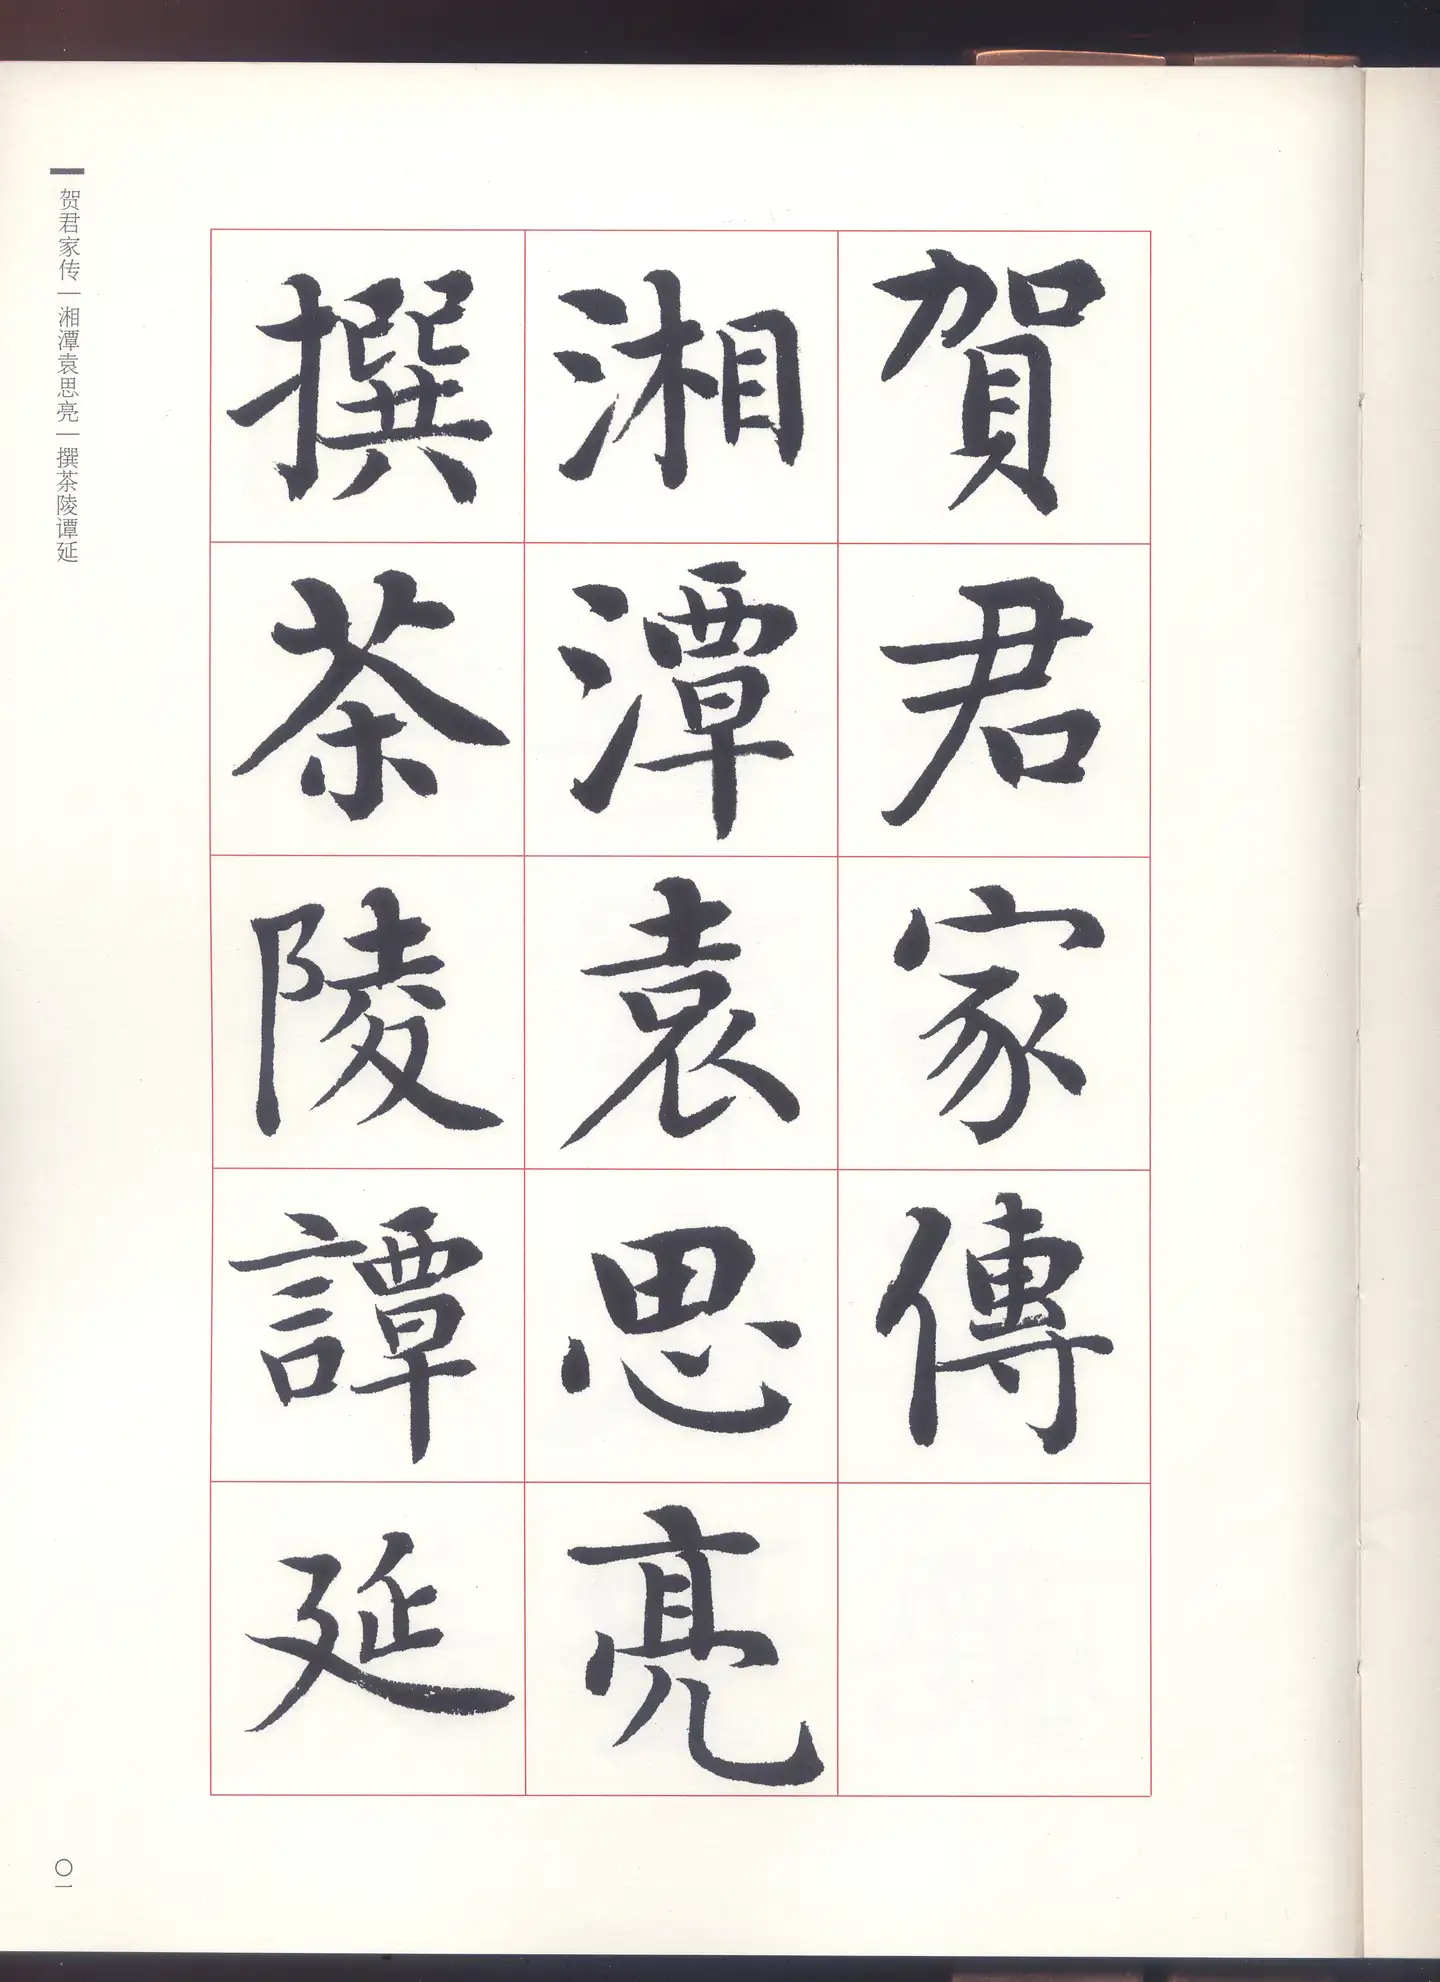 賀君家傳
湘潭袁思亮
撰茶陵譚延
贺君家传|湘潭袁思亮|撰茶陵谭延
〇一